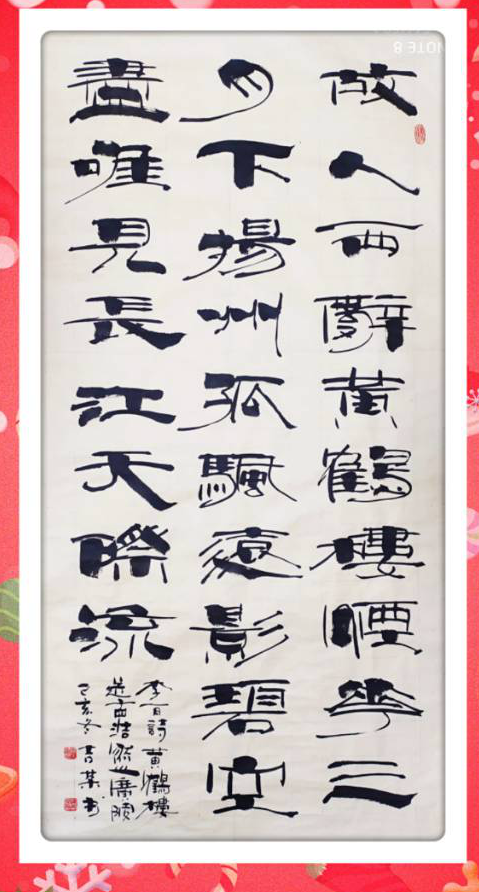 故人西辭黃鶴樓煙花三
月下揚州孤颿遠影碧空
盡唯見長江天際流
李白詩黃鶴樓
送孟浩然之廣陵
己亥冬
NOTE 8